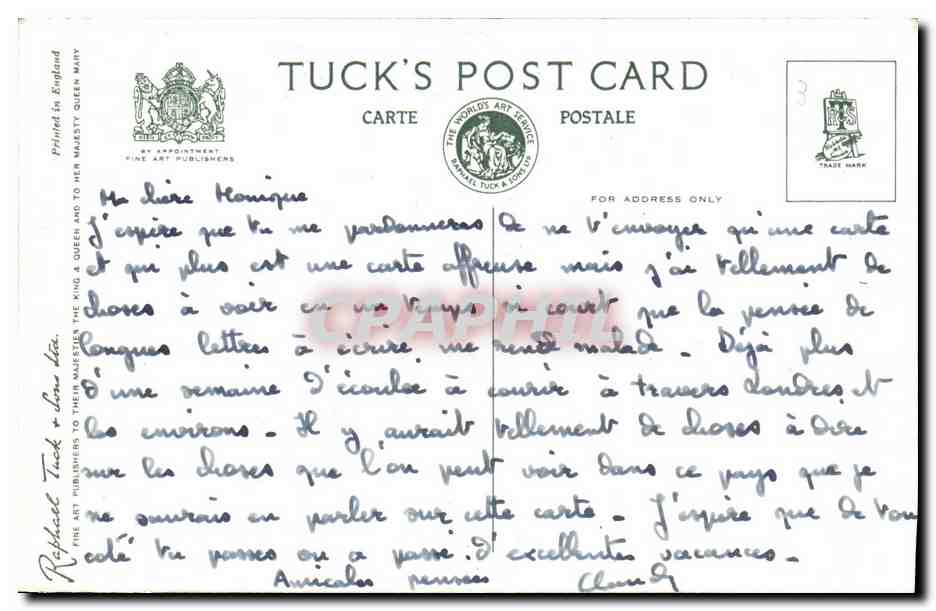 TUCK'S POST CARD
CARTE POSTALE
BY APPOINTMENT
FINE ART PUBLISHERS
THE WORLD'S ART SERVICE
RAPHAEL TUCK & SONS LTD
TRADE MARK
FOR ADDRESS ONLY
Printed in England
Raphael Tuck & Sons Ltd.
FINE ART PUBLISHERS TO THEIR MAJESTIES THE KING & QUEEN AND TO HER MAJESTY QUEEN MARY
Ma chère Monique
J'espère que tu me pardonneras de ne t'envoyer qu'une carte
et qui plus est une carte affreuse mais j'ai tellement de
choses à voir en un temps si court que la pensée de
longues lettres à écrire me rend malade - Déjà plus
d'une semaine d'écoulée à courir à travers Londres et
les environs - Il y aurait tellement de choses à dire
sur les choses que l'on peut voir dans ce pays que je
ne saurais en parler sur cette carte - J'espère que de ton
coté tu passes ou a passé d'excellentes vacances -
Amicales pensées
CPAPHIL